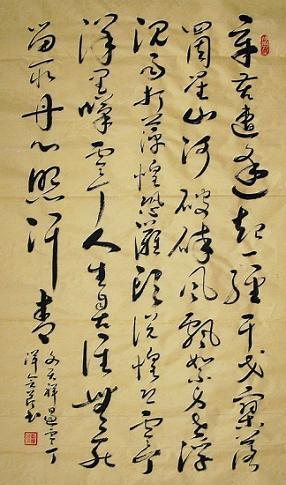 辛苦遭逢起一經干戈寥落
四周星山河破碎風飄絮身世浮
沉雨打萍惶恐灘頭說惶恐零丁
洋裏嘆零丁人生自古誰無死
留取丹心照汗青
文天祥過零丁
洋